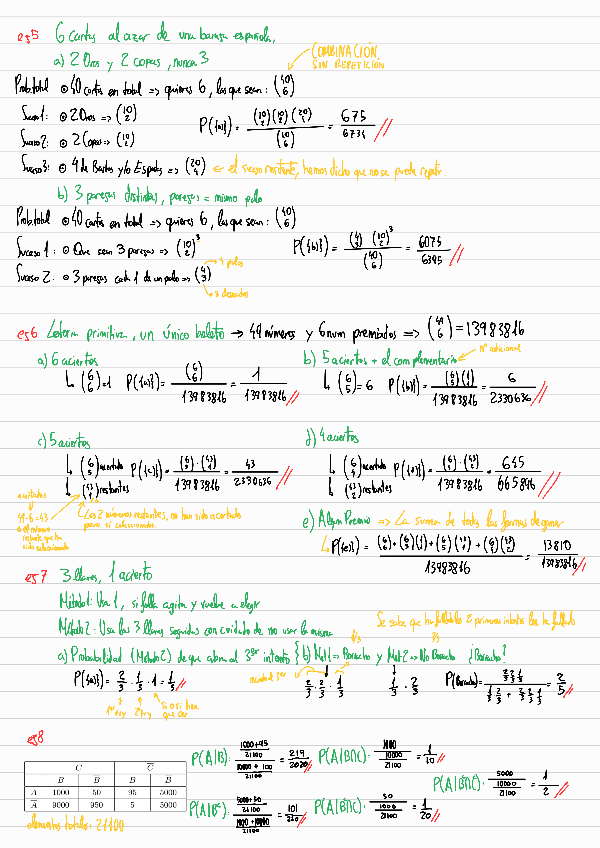 es5 6 cartas al azar de una baraja española.
a) 2 Oros y 2 copas, nunca 3
COMBINACIÓN SIN REPETICIÓN
Prob.total ⊙ 40 cartas en total => quieres 6, las que sean: (40 6)
Suceso1: ⊙ 2 Oros => (10 2)
Suceso2: ⊙ 2 Copas => (10 2)
P({a}) = (10 2)(10 2)(20 4) / (40 6) = 675/6734
Suceso3: ⊙ 4 de Bastos y/o Espadas => (20 4) <= el suceso restante, hemos dicho que no se puede repetir.
b) 3 parejas distintas, parejas = mismo palo
Prob.total ⊙ 40 cartas en total => quieres 6, las que sean: (40 6)
Suceso 1: ⊙ Que sean 3 parejas => (10 2)³
P({b}) = (4 3)(10 2)³ / (40 6) = 6075/6395
Suceso 2: ⊙ 3 parejas cada 1 de un palo => (4 3)
4 palos
3 deseados
es6 Lotería primitiva, un único boleto → 49 números y 6 num premiados => (49 6) = 13983816
a) 6 aciertos
(6 6) = 1 P({a}) = (6 6) / 13983816 = 1/13983816
b) 5 aciertos + el complementario
nº adicional
(6 5) = 6 P({b}) = (6 5)(1 1) / 13983816 = 6/2330636
c) 5 aciertos
(6 5) acertado
(43 1) restantes
P({c}) = (6 5)·(43 1) / 13983816 = 43/2330636
acertados
49-6=43
Los 2 números restantes, no han sido acertados
pero sí seleccionados
d) 4 aciertos
(6 4) acertado
(43 2) restantes
13983816 = 645/665896
e) Algún Premio => La suma de todas las formas de ganar
13983816 = 13810/13983816
es7 3 llaves, 1 acierto
Método1: Usa 1, si falla agita y vuelve a elegir
Método2: Usa las 3 llaves seguidas con cuidado de no usar la misma
Se sabe que ha fallado 2 primeros intentos los ha fallado
a) Probabilidad (Método2) de que abra al 3er intento
b) Met1 => Borracho y Met2 => No Borracho ¿Borracho?
1/3
2/3
P({a}) = 2/3 · 1/2 · 1 = 1/3
2/3 · 2/3 · 1/3
1/3 · 2/3
P(Borracho) = = 2/5
es8
C C̅
B B̅ B B̅
A 1000 50 95 5000
A̅ 9000 950 5 5000
elementos totales: 21100
P(A|B) = 219/2020
P(A|B∩C) = 1000/21100 / 10000/21100 = 1/10
P(A|B∩C) = 5000/21100 / 10000/21100 = 1/2
P(A|B) = 5000+50/21100 / 1000+10000/21100 = 101/220
P(A|B∩C) = 50/21100 / 1000/21100 = 1/20